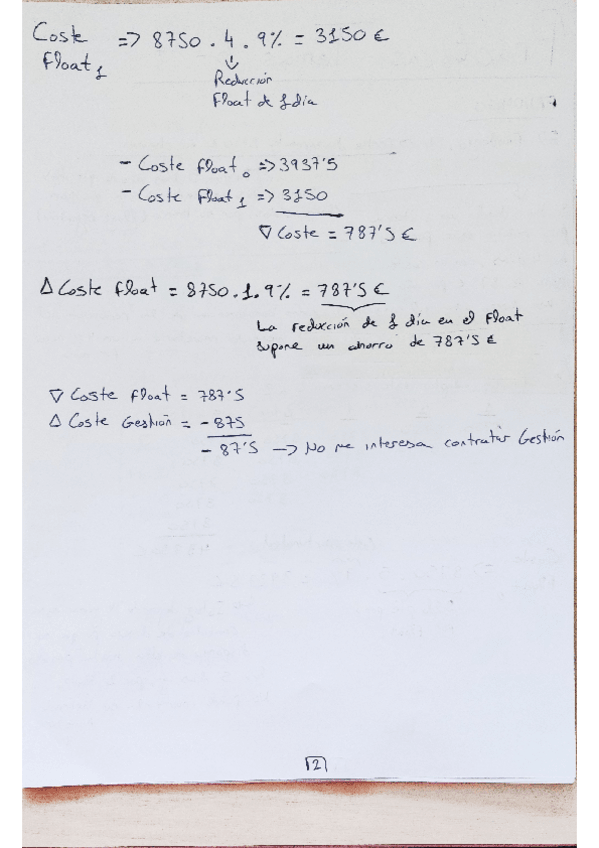 Coste
Float₁ => 8750 . 4 . 9% = 3150 €
↓
Reducción
Float de 1 día
- Coste Float₀ => 3937'5
- Coste Float₁ => 3150
▽ Coste = 787'5 €
Δ Coste float = 8750 . 1 . 9% = 787'5 €
La reducción de 1 día en el Float
supone un ahorro de 787'5 €
▽ Coste Float = 787'5
Δ Coste Gestión = - 875
- 87'5 –> No me interesa contratar Gestión
2